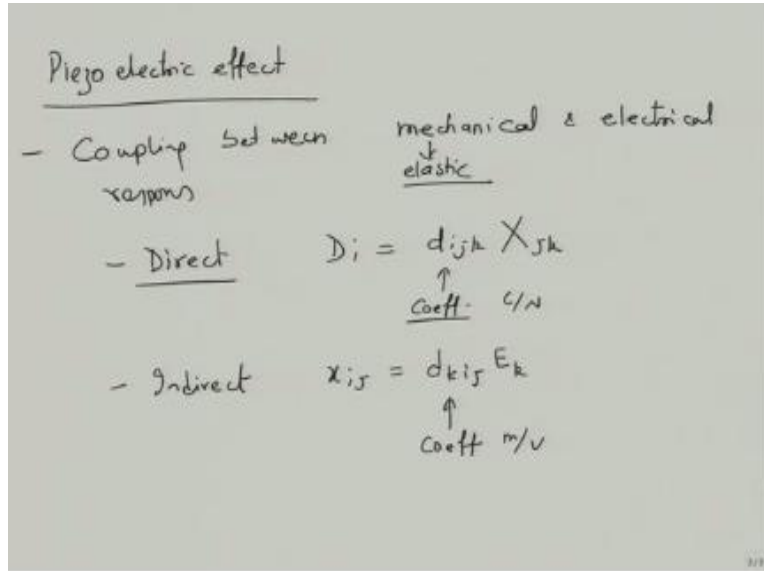 Piezo electric effect
- Coupling between mechanical & electrical
↓
respons elastic
- Direct Di = dijk Xjk
↑
Coeff. C/N
- Indirect xij = dkij Ek
↑
Coeff m/V